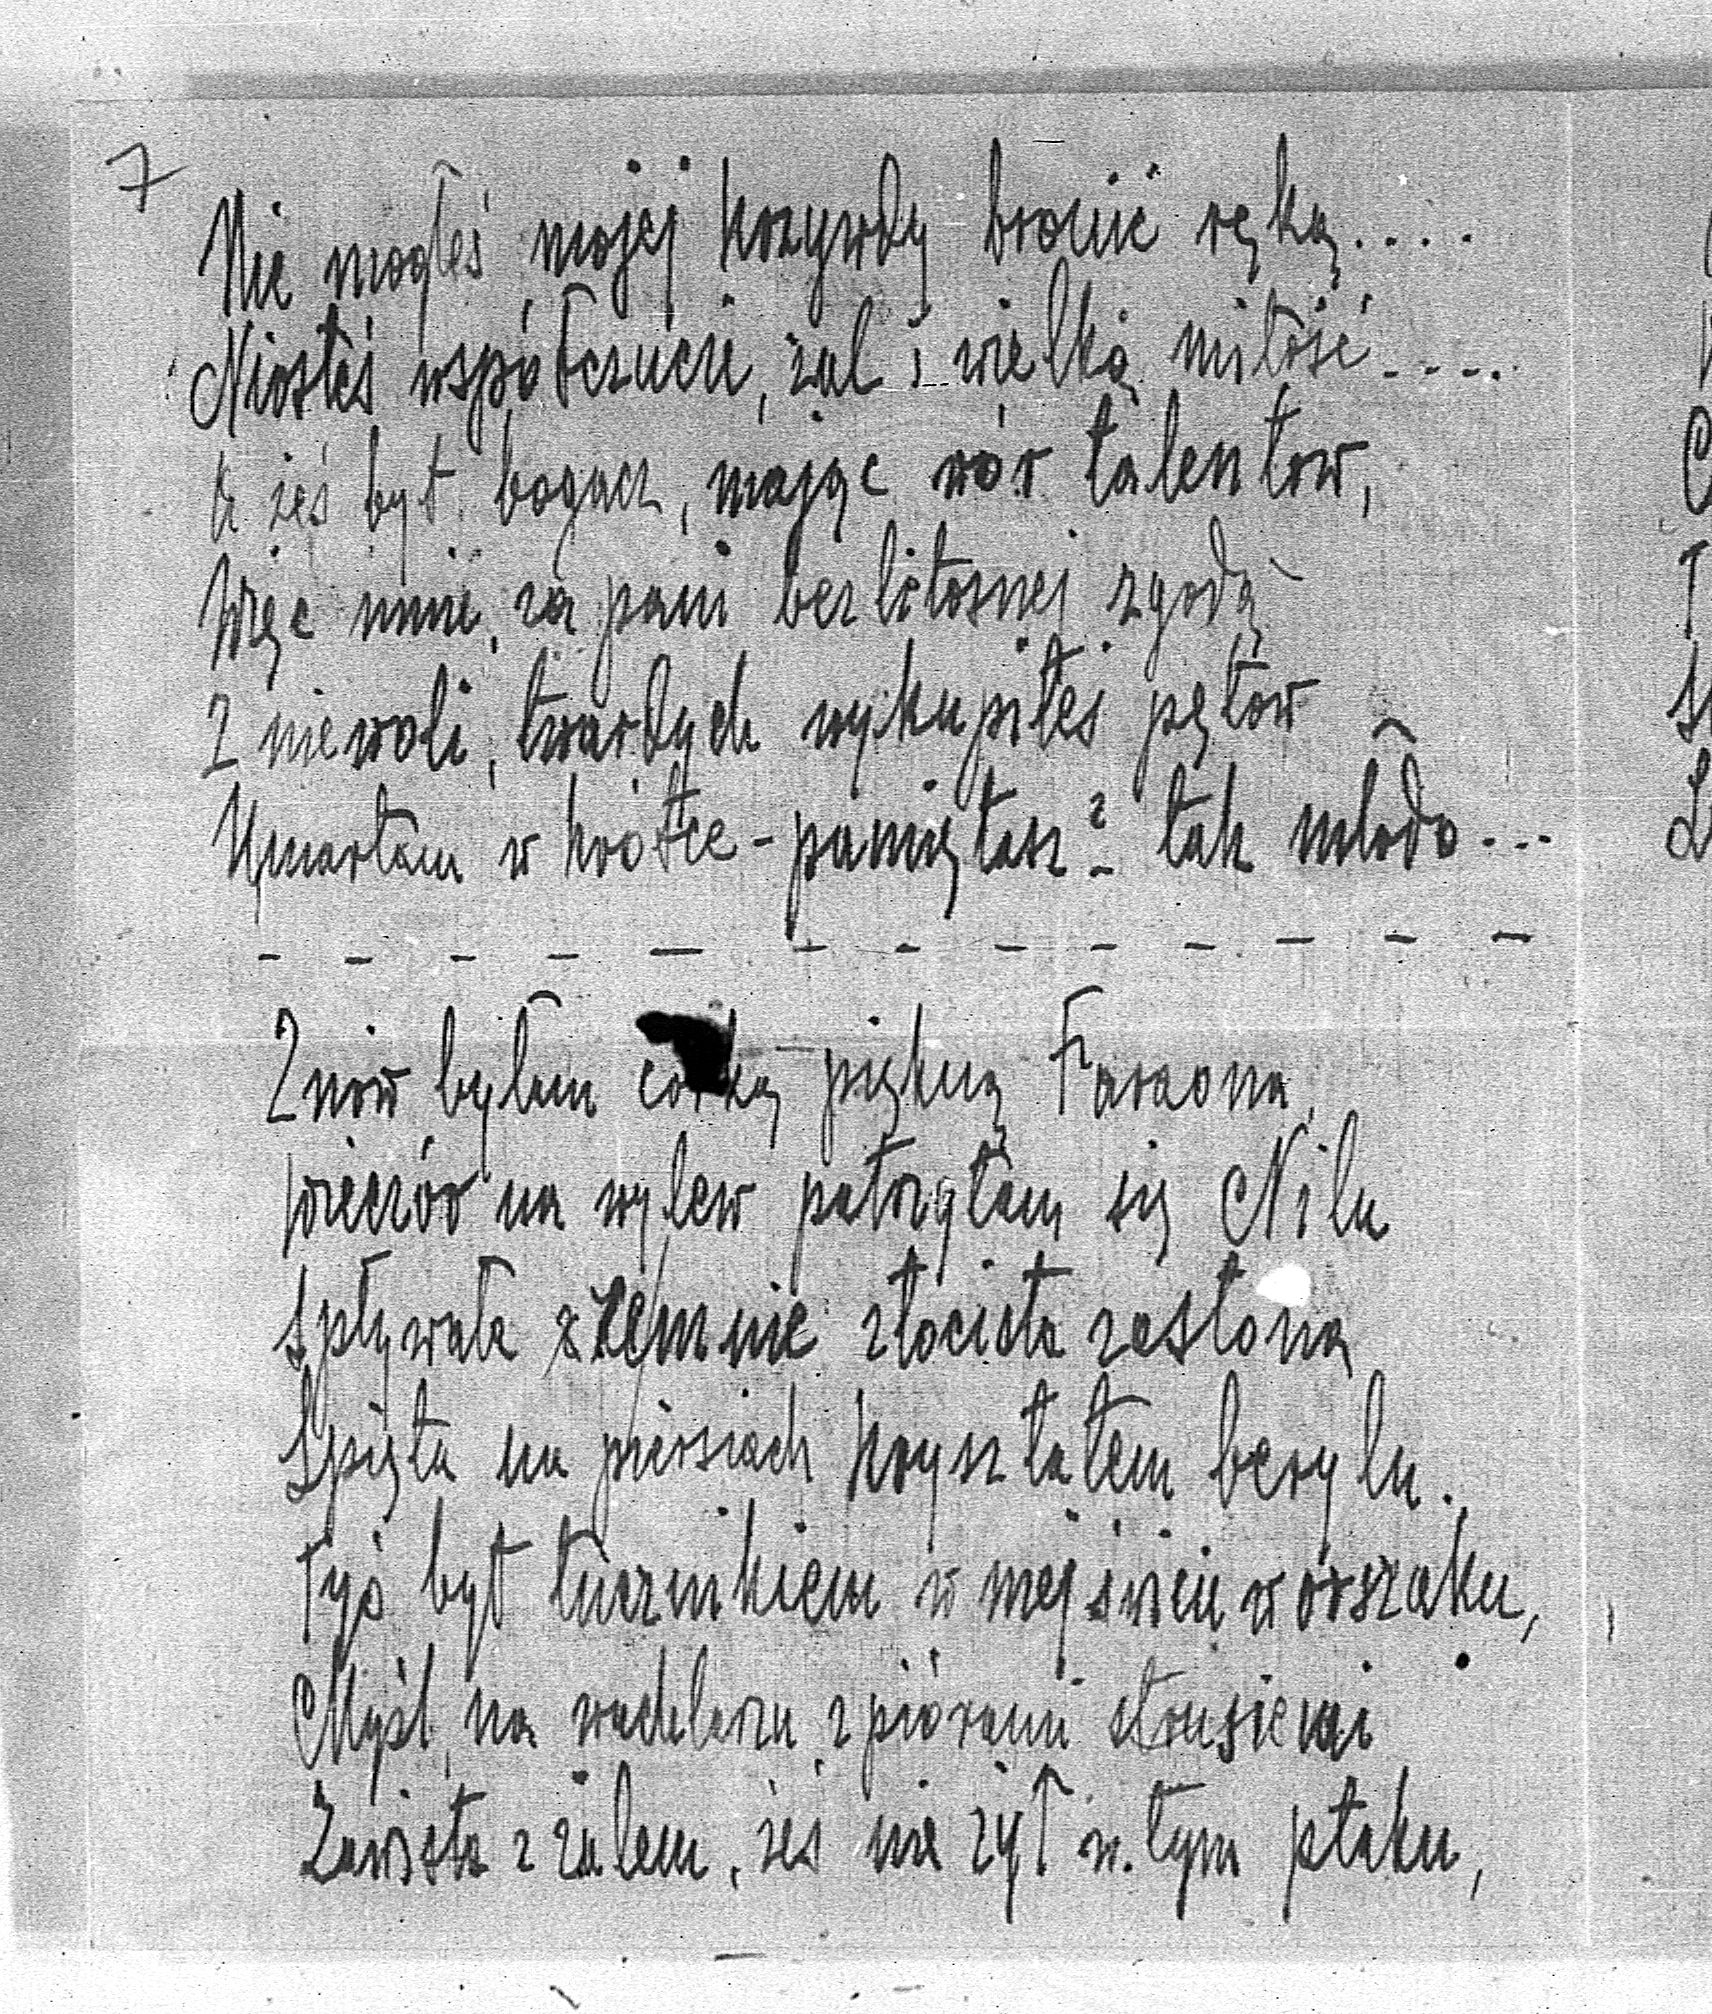 7
Nie mogłeś mojej krzywdy bronić ręką....
Niosłeś współczucie, żal i wielką miłość.....
A żeś był bogacz, mając wór talentów,
Więc mnie, za pani bezlitosnej zgodą
Z niewoli, twardych wykupiłeś pętów
Umarłam w krótce - pamiętasz? - tak młodo...
Znów byłam córką piękną Faraona,
Wieczór na wylew patrzyłam się Nilu
Spływała ze mnie złocista zasłona
Spięta na piersiach kryształem berylu.
Tyś był łucznikiem w mej świcie w orszaku,
Myśl, na wachlarzu z piórami strusiemi
Zawisła z żalem, żeś nie żył w tym ptaku,